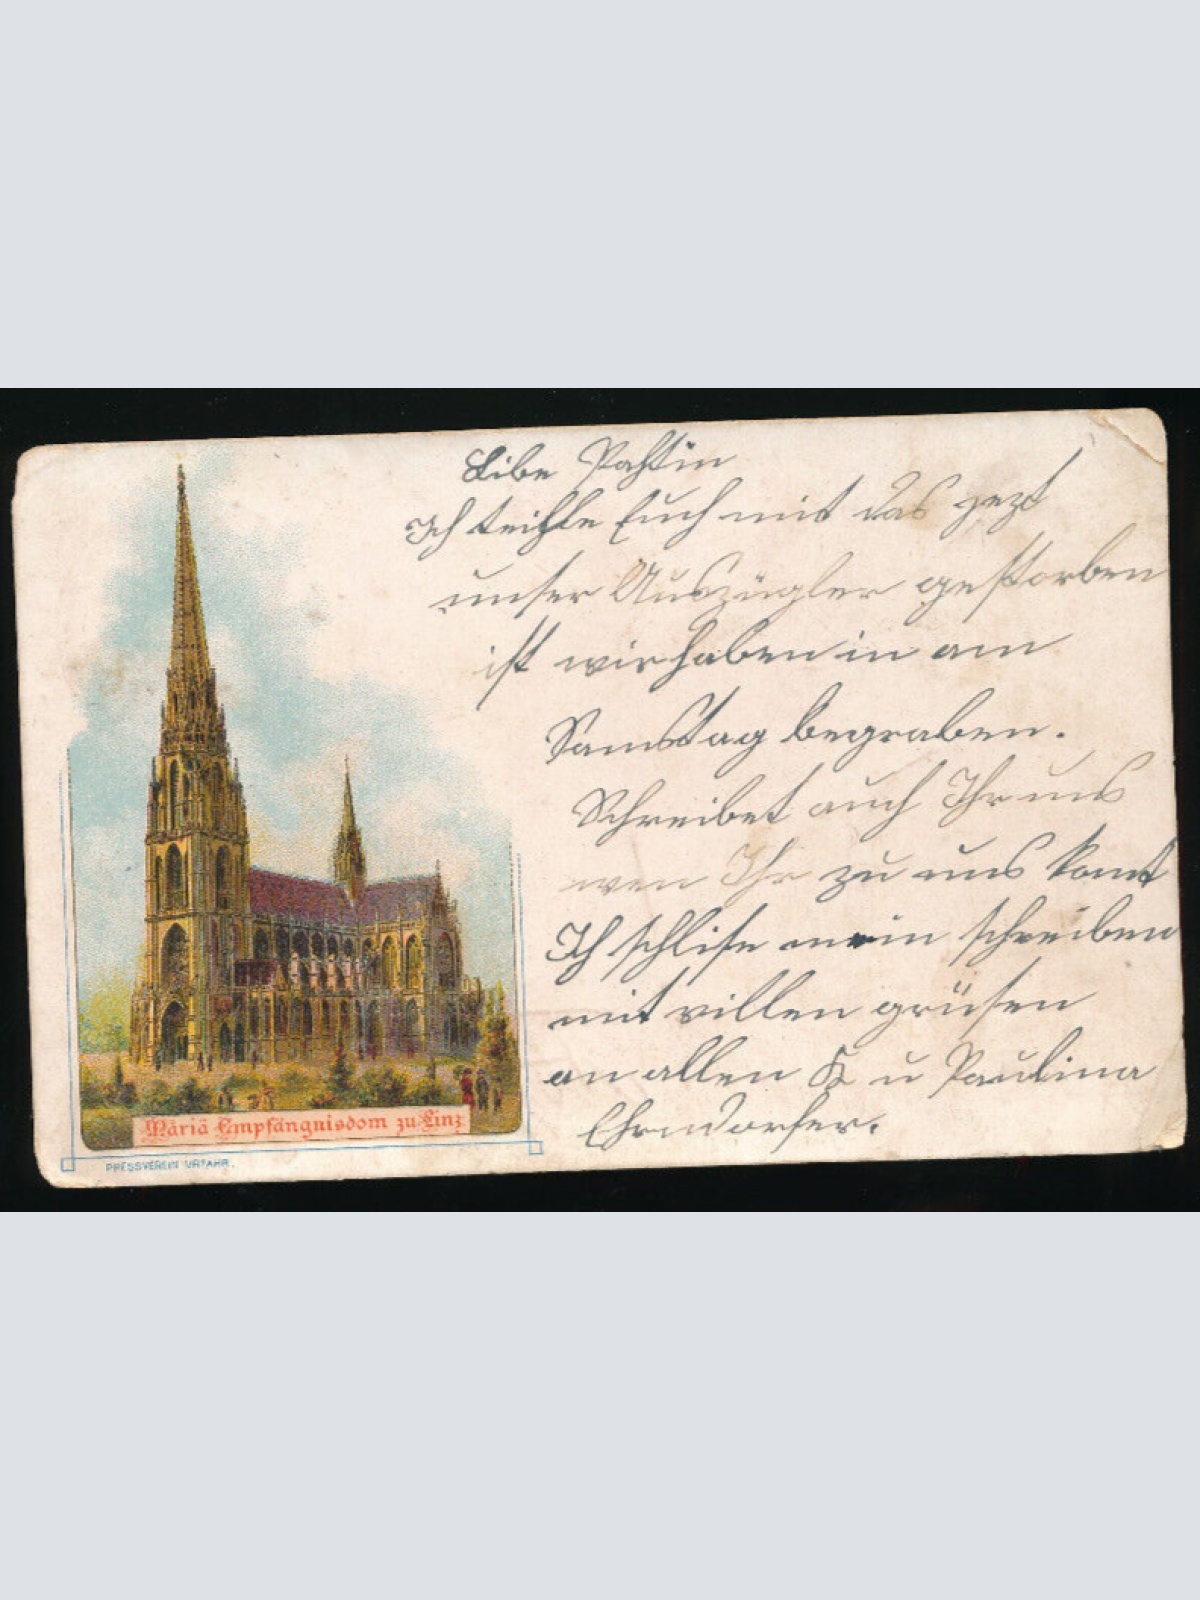 Libe Pahtin
Ich teihle Euch mit das jezt
unser Auszügler gestorben
ist wir haben in am
Samstag begraben.
Schreibet auch Ihr uns
wen Ihr zu uns komt
Ich schlise mein schreiben
mit villen grüsen
an allen K u Paulina
Ehrndorfer.
Mariä Empfängnisdom zu Linz
PRESSVEREIN URFAHR.